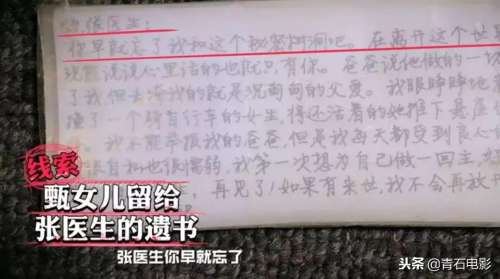 张医生：
你早就忘了我和这个秘密树洞吧。在离开这个世
说说心里话的也就只有你。爸爸说他做的一切
了我，但
我的就是沉甸甸的父爱。我眼睁睁地
撞了一个骑自行车的女生，将还活着的她推下悬崖
我不能举报我的爸爸，但是我每天都受到良心
很懦弱，我第一次想为自己做一回主，
再见了！如果有来世，我不会再放
线索
甄女儿留给
张医生的遗书
张医生你早就忘了
头条 @青石电影